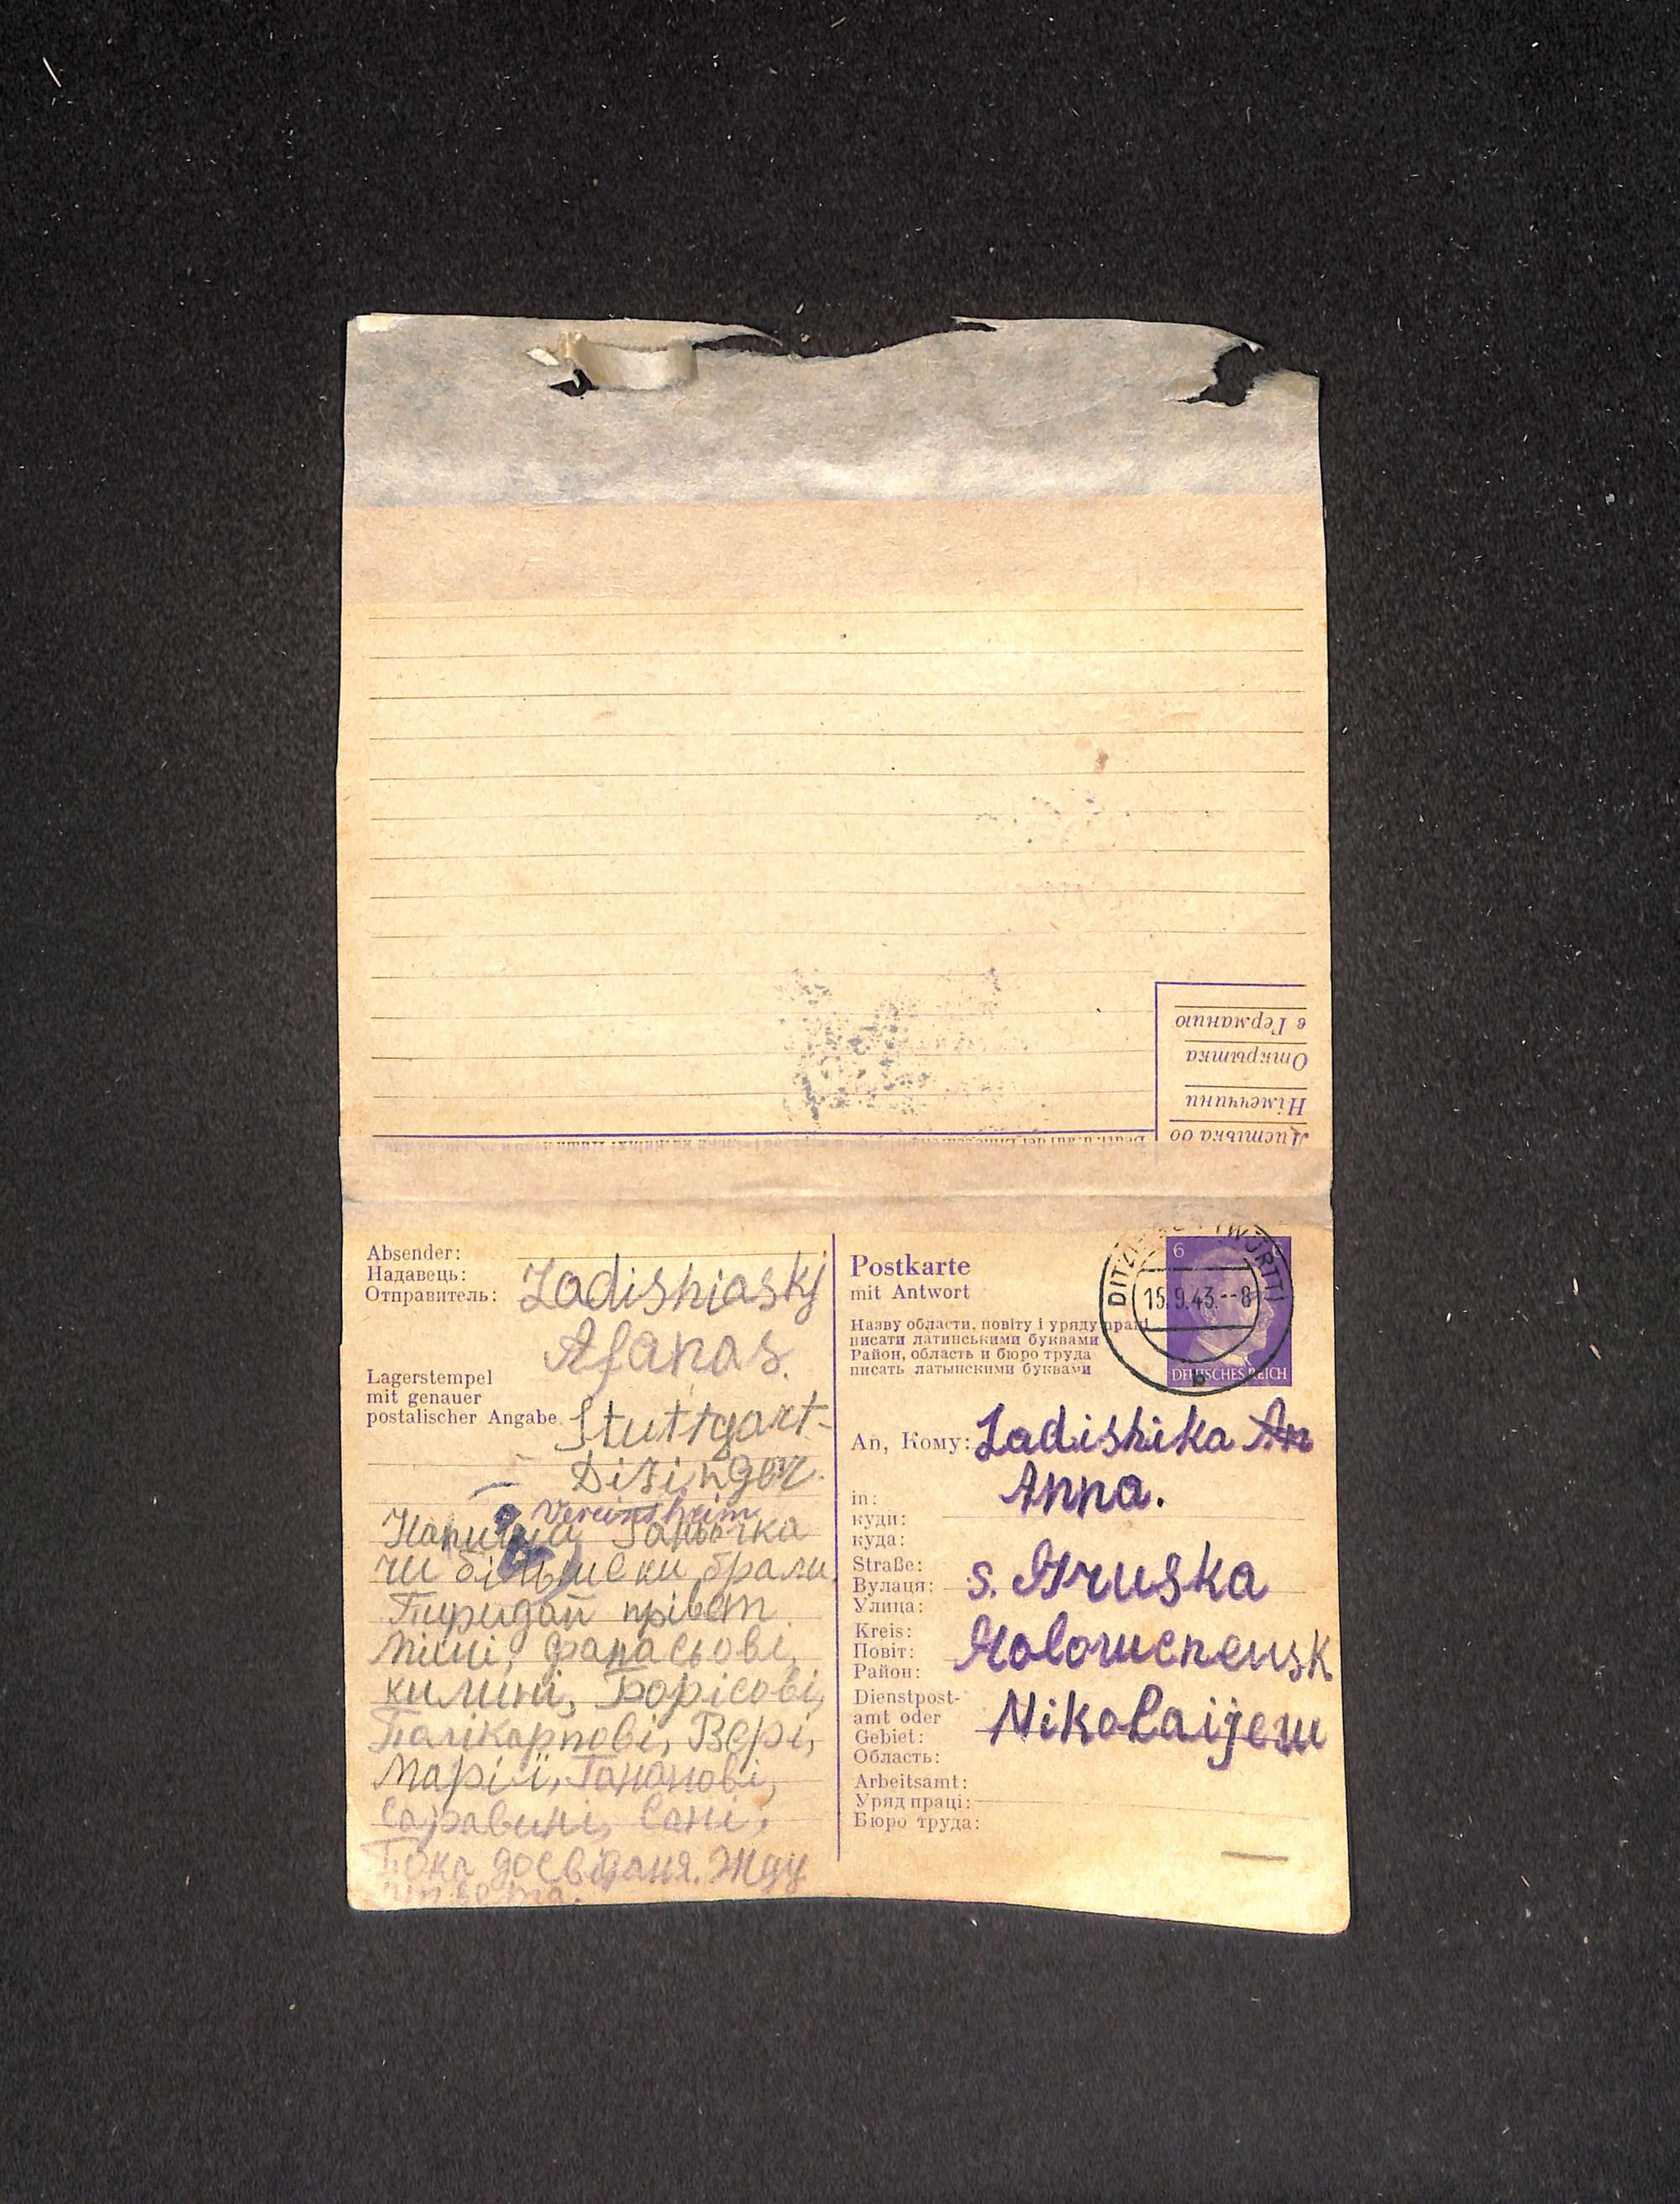 Листівка до
Німеччини
Открытка
в Германию
Absender:
Надавець:
Отправитель:
Ladishiaskj
Afanas.
Lagerstempel
mit genauer
postalischer Angabe
Stuttgart-
Dizingen.
Vereinsheim
Ганьочка
чи більше ни брали
Пиридай прівет
Міші, Фанасьові,
килині, Борісові,
Полікарпові, Вєрі,
Марії,
Сані,
Пока досвіданя. Жду
Postkarte
mit Antwort
Назву области, повіту і уряду праці
писати латинськими буквами
Район, область и бюро труда
писать латынскими буквами
6
DEUTSCHES REICH
15.9.43.--8
b
An, Кому: Ladishika An
Anna.
in:
куди:
куда:
Straße:
Вулаця:
Улица:
s. Gruska
Kreis:
Повіт:
Район:
Golowenewsk
Dienstpost-
amt oder
Gebiet:
Область:
Nikolaijew
Arbeitsamt:
Уряд праці:
Бюро труда: